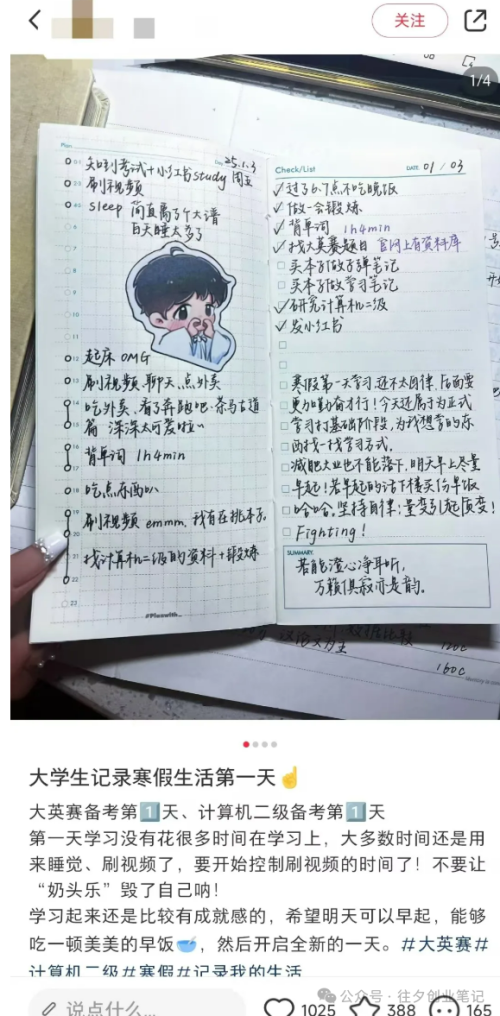 关注
1/4
Plan
Day 25.1.3 周五
知到考试+小红书study
刷视频
sleep 简直离了个大谱
白天睡太多了
起床 OMG
刷视频、聊天、点外卖
吃外卖，看了奔跑吧·茶马古道
篇 深深太可爱啦~
背单词 1h4min
吃点东西叭
刷视频 emmm，我有在挑本子。
找计算机二级的资料+锻炼
Check/List
DATE 01/03
过了6.7点不吃晚饭
做一会锻炼
背单词 1h4min
找大英赛题目 官网上有资料库
买本子做子弹笔记
买本子做学习笔记
研究计算机二级
发小红书
寒假第一天学习，还不太自律，后面要
更加勤奋才行！今天还属于为正式
学习打基础阶段，为我想学的东
西找一找学习方式。
减肥大业也不能落下，明天早上尽量
早起！若早起的话下楼买份早饭
哈哈。坚持自律，量变引起质变！
Fighting！
SUMMARY
若能澄心净耳听，
万籁俱寂亦是韵。
120c
160c
大学生记录寒假生活第一天☝️
大英赛备考第1️⃣天、计算机二级备考第1️⃣天
第一天学习没有花很多时间在学习上，大多数时间还是用
来睡觉、刷视频了，要开始控制刷视频的时间了！不要让
“奶头乐”毁了自己呐！
学习起来还是比较有成就感的，希望明天可以早起，能够
吃一顿美美的早饭🥣，然后开启全新的一天。#大英赛#
计算机二级#寒假#记录我的生活
说点什么...
1025
388
165
公众号·往夕创业笔记